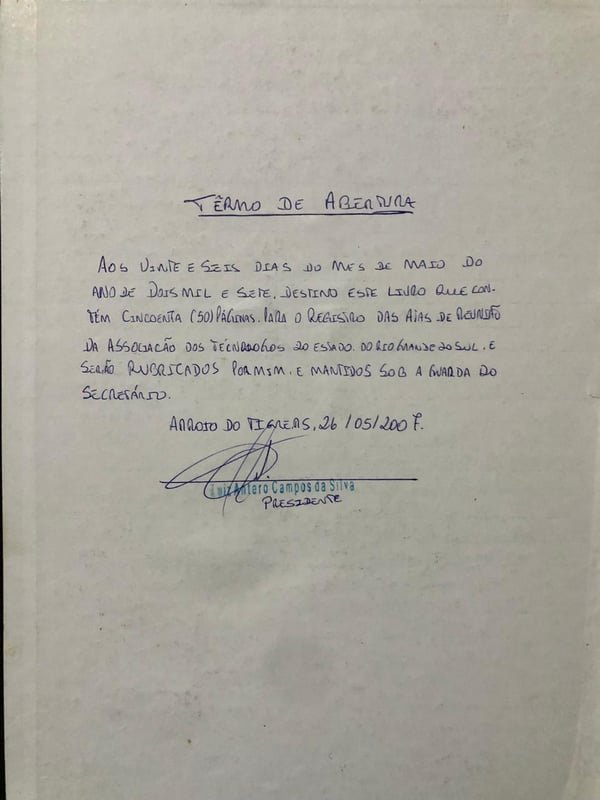 TÊRMO DE ABERTURA
AOS VINTE E SEIS DIAS DO MES DE MAIO DO
ANO DE DOIS MIL E SETE, DESTINO ESTE LIVRO QUE CON-
TÉM CINCOENTA (50) PÁGINAS. PARA O REGISTRO DAS ATAS DE REUNIÃO
DA ASSOCIAÇÃO DOS TÉCNÓLOGOS DO ESTADO. DO RIO GRANDE DO SUL. E
SERÃO RUBRICADOS POR MIM. E MANTIDOS SOB A GUARDA DO
SECRETÁRIO.
ARROIO DO TIGRE RS, 26/05/2007.
Luiz Antero Campos da Silva
PRESIDENTE